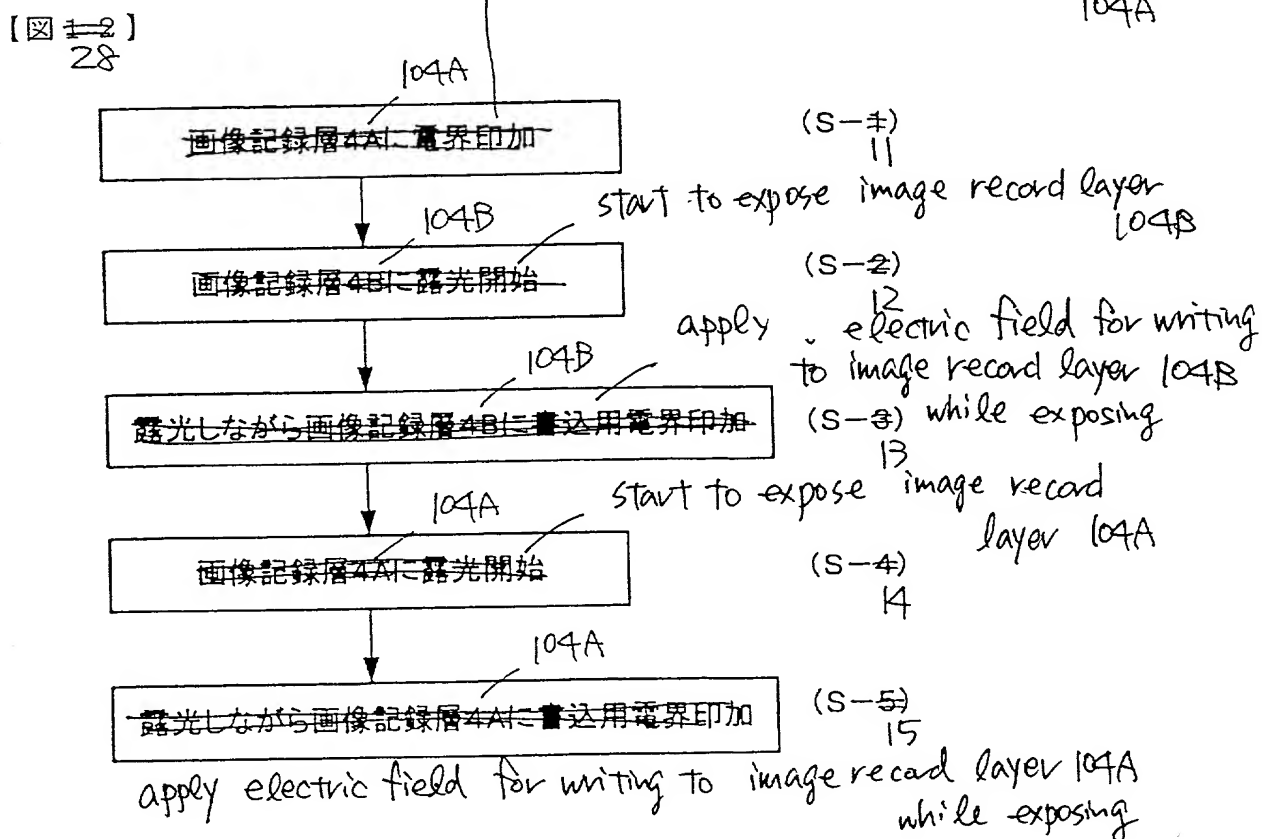 104A
【図12】
28
104A
画像記録層4Aに電界印加
(S-1)
11
start to expose image record layer
104B
104B
画像記録層4Bに露光開始
(S-2)
12
apply electric field for writing
to image record layer 104B
while exposing
104B
露光しながら画像記録層4Bに書込用電界印加
(S-3)
13
start to expose image record
layer 104A
104A
画像記録層4Aに露光開始
(S-4)
14
104A
露光しながら画像記録層4Aに書込用電界印加
(S-5)
15
apply electric field for writing to image record layer 104A
while exposing